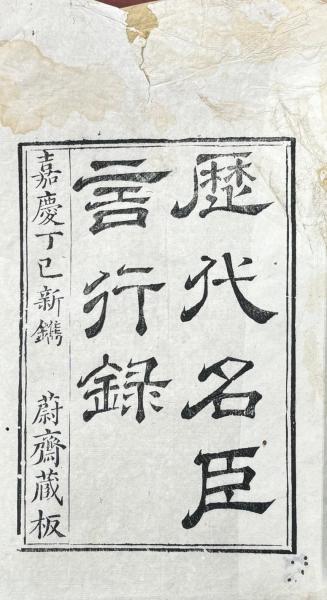 歷代名臣
言行録
嘉慶丁巳新鐫 蔚齋藏板